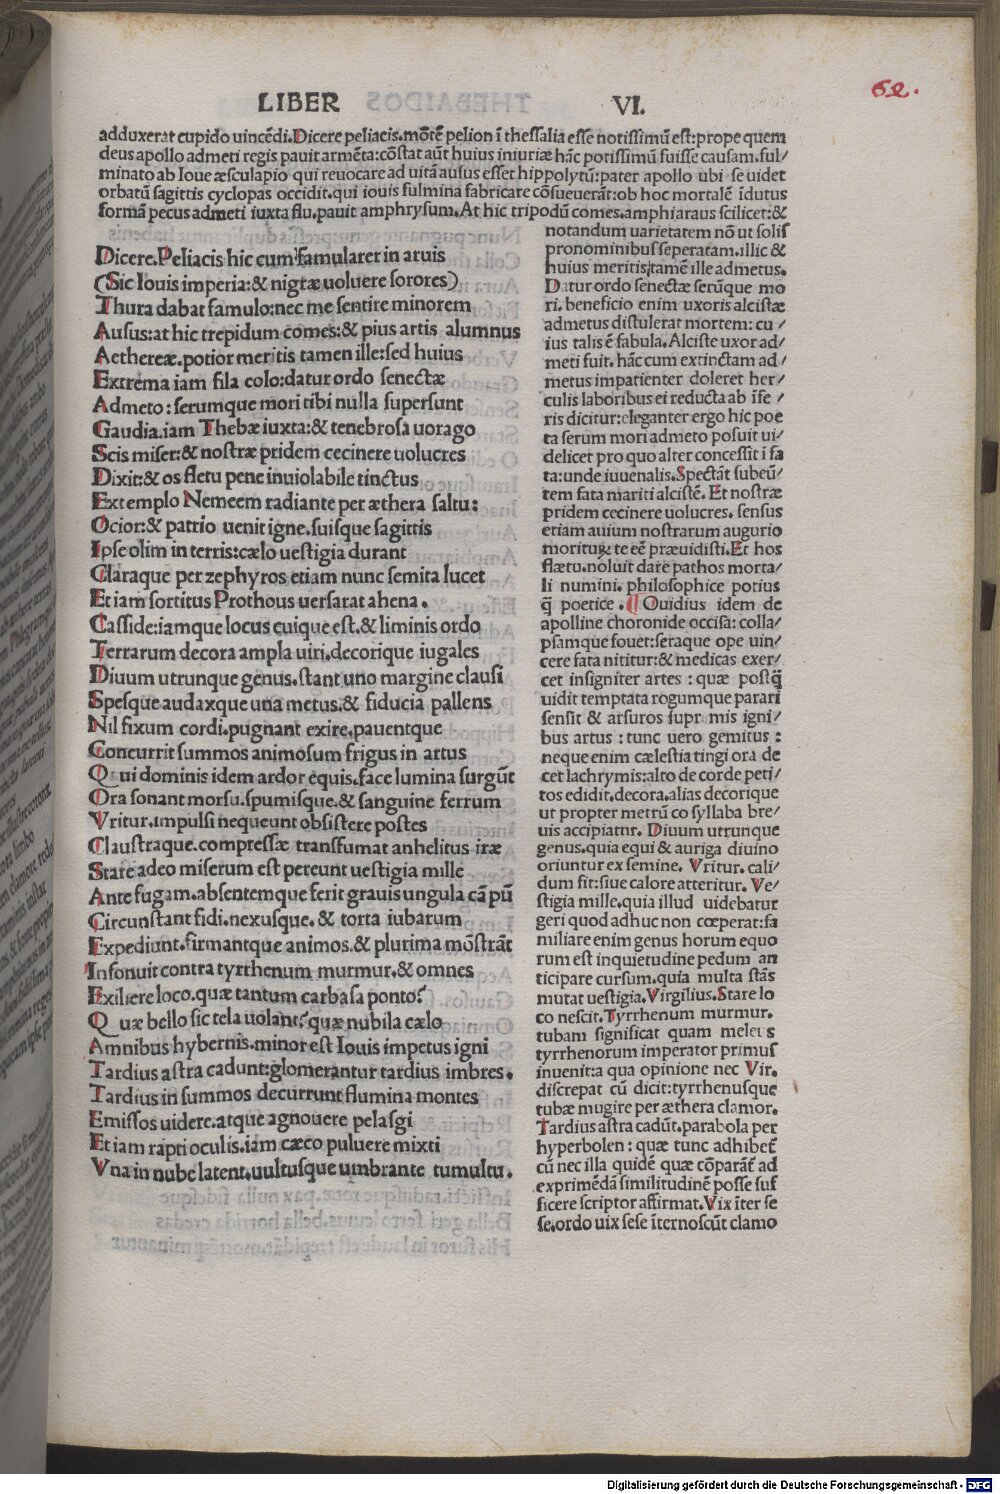 LIBER VI.
62.
adduxerat cupido uincẽdi.Dicere peliacis.mõtẽ pelion ĩ thessalia esse notissimũ est:prope quem
deus apollo admeti regis pauit armẽta:cõstat aũt huius iniuriæ hãc potissimũ fuisse causam.ful/
minato ab Ioue æsculapio qui reuocare ad uitã ausus esset hippolytũ:pater apollo ubi se uidet
orbatũ sagittis cyclopas occidit.qui iouis fulmina fabricare cõsueuerãt:ob hoc mortalẽ idutus
formã pecus admeti iuxta flu.pauit amphrysum.At hic tripodũ comes.amphiaraus scilicet:&
Dicere.Peliacis hic cum famularer in aruis
(Sic Iouis imperia:& nigræ uoluere sorores)
Thura dabat famulo:nec me sentire minorem
Ausus:at hic trepidum comes:& pius artis alumnus
Aethereæ.potior meritis tamen ille:sed huius
Extrema iam fila colo:datur ordo senectæ
Admeto:serumque mori tibi nulla supersunt
Gaudia.iam Thebæ iuxta:& tenebrosa uorago
Scis miser:& nostræ pridem cecinere uolucres
Dixit:& os fletu pene inuiolabile tinctus
Extemplo Nemeem radiante per æthera saltu:
Ocior:& patrio uenit igne.suisque sagittis
Ipse olim in terris:cælo uestigia durant
Claraque per zephyros etiam nunc semita lucet
Et iam sortitus Prothous uersarat ahena.
Casside:iamque locus cuique est.& liminis ordo
Terrarum decora ampla uiri.decorique iugales
Diuum utrunque genus.stant uno margine clausi
Spesque audaxque una metus.& fiducia pallens
Nil fixum cordi.pugnant exire.pauentque
Concurrit summos animosum frigus in artus
Qui dominis idem ardor equis.face lumina surgũt
Ora sonant morsu.spumisque.& sanguine ferrum
Vritur.impulsi nequeunt obsistere postes
Claustraque.compressæ transfumat anhelitus iræ
Stare adeo miserum est pereunt uestigia mille
Ante fugam.absentemque ferit grauis ungula cãpũ
Circunstant fidi.nexusque.& torta iubarum
Expediunt.firmantque animos.& plurima mõstrãt
Insonuit contra tyrrhenum murmur.& omnes
Exiliere loco.quæ tantum carbasa ponto?
Quæ bello sic tela uolant?quæ nubila cælo
Amnibus hybernis.minor est Iouis impetus igni
Tardius astra cadunt:glomerantur tardius imbres.
Tardius in summos decurrunt flumina montes
Emissos uidere.atque agnouere pelasgi
Et iam rapti oculis.iam cæco puluere mixti
Vna in nube latent.uultusque umbrante tumultu.
notandum uarietatem nõ ut solis
pronominibus seperatam.illic &
huius meritis;tamẽ ille admetus.
Datur ordo senectæ serũque mo
ri. beneficio enim uxoris alcistæ
admetus distulerat mortem: cu/
ius talis ẽ fabula.Alciste uxor ad/
meti fuit.hãc cum extinctam ad/
metus impatienter doleret her/
culis laboribus ei reducta ab ĩfe/
ris dicitur:eleganter ergo hic poe
ta serum mori admeto posuit ui/
delicet pro quo alter concessit ĩ fa
ta:unde iuuenalis.Spectãt subeũ/
tem fata mariti alcistẽ. Et nostræ
pridem cecinere uolucres. sensus
etiam auium nostrarum augurio
morituꝝ te eẽ præuidisti.Et hos
flætu.noluit dare pathos morta/
li numini. philosophice potius
q̃ poetice. ¶ Ouidius idem de
apolline choronide occisa: colla/
psamque fouet:seraque ope uin/
cere fata nititur:& medicas exer/
cet insigniter artes : quæ postq̃
uidit temptata rogumque parari
sensit & arsuros supremis igni/
bus artus : tunc uero gemitus :
neque enim cælestia tingi ora de
cet lachrymis:alto de corde peti/
tos edidit.decora.alias decorique
ut propter metrũ co syllaba bre/
uis accipiatur. Diuum utrunque
genus.quia equi & auriga diuino
oriuntur ex semine. Vritur. cali/
dum fit:siue calore atteritur. Ve/
stigia mille.quia illud uidebatur
geri quod adhuc non cœperat:fa
miliare enim genus horum equo
rum est inquietudine pedum an
ticipare cursum.quia multa stãs
mutat uestigia.Virgilius.Stare lo
co nescit.Tyrrhenum murmur.
tubam significat quam meleus
tyrrhenorum imperator primus
inuenit:a qua opinione nec Vir.
discrepat cũ dicit:tyrrhenusque
tubæ mugire per æthera clamor.
Tardius astra cadũt.parabola per
hyperbolen : quæ tunc adhibet̃
cũ nec illa quidẽ quæ cõparãt̃ ad
exprimẽdã similitudinẽ posse suf
ficere scriptor affirmat.Vix ĩter se
se.ordo uix sese ĩternoscũt clamo
Digitalisierung gefördert durch die Deutsche Forschungsgemeinschaft - DFG